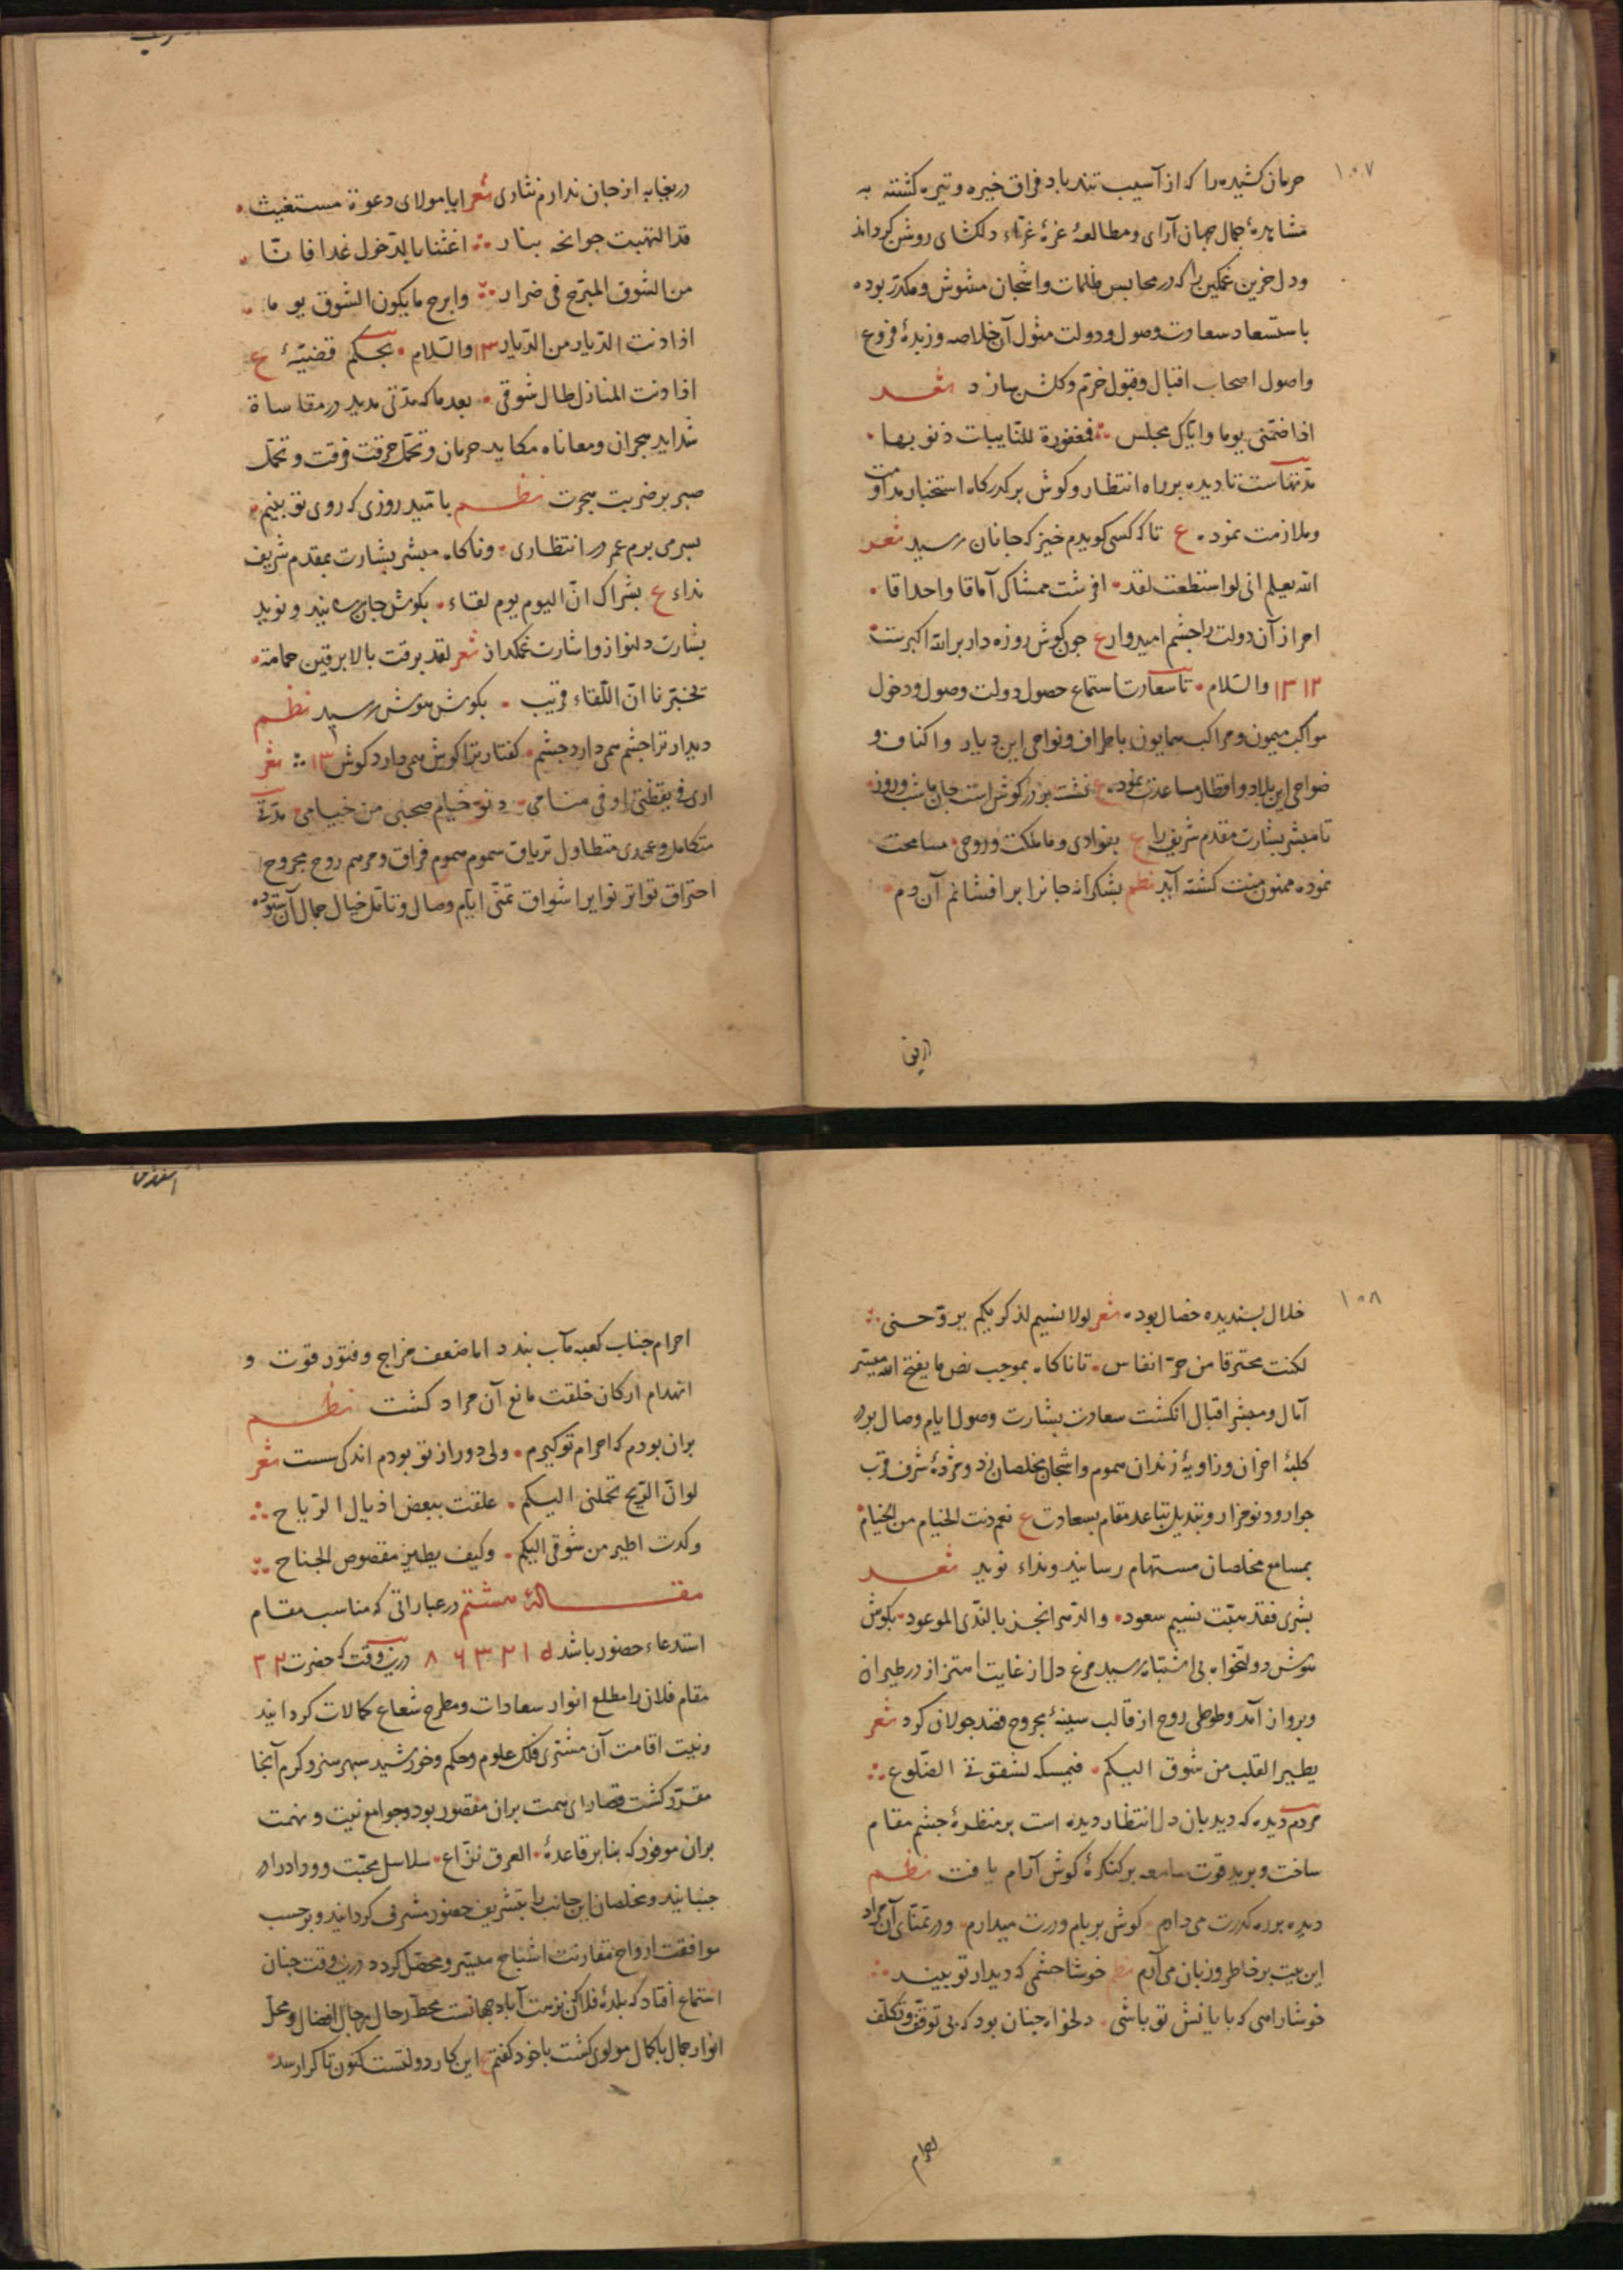 ۱۰۷
حرمان کشیده را که از آسیب تندباد فراق خیره و تیره کشته به
مشاهدهٔ جمال جهان آرای و مطالعهٔ غرهٔ غراء دلکشای روشن کرداند
ودل حزین غمکین را که در محابس ظلمات واشجان مشوش و مکدر بوده
باستسعاد سعادت وصول و دولت مثول آن خلاصه و زبدهٔ فروع
واصول اصحاب اقبال وقبول خرم و کلشن سازد شعر
اذا ضمنی یوما وایاک مجلس فمغفورة للنایبات ذنوبها
مدتهاست تا دیده بر راه انتظار وکوش برکذرکاه استخبار مداومت
وملازمت نموده ع تا که کسی کویدم خیز که جانان رسید شعر
الله یعلم انی لو استطعت لقد افرشت ممشاک آماقا واحداقا
احراز آن دولت را چشم امیدوار ع چون کوش روزه دار بر الله اکبرست
۱۳ ۱۲ والسلام تا سعادت استماع حصول دولت وصول ودخول
مواکب میمون و مراکب همایون باطراف و نواحی این دیار واکناف و
ضواحی این بلاد واقطار مساعدت نموده ع نشسته بر در کوش است جان ما شب و روز
تا مبشر بشارت مقدم شریف را ع بفوادی وما ملکت وروحی مسامحت
نموده ممنون منت کشته آید نظم بشکرانه جانرا برافشانم آن دم
دریغا به از جان ندارم نثاری شعر ایا مولای دعوة مستغیث
قد التهبت جوانحه بنار اغثنا بالدخول غدا فانا
من الشوق المبرح فی ضرار وابرح ما یکون الشوق یوما
اذا دنت الدیار من الدیار ۱۳ والسلام بحکم قضیهٔ ع
اذا دنت المنازل طال شوقی بعد ما که مدتی مدید در مقاساة
شداید هجران ومعاناه مکاید حرمان و تحمل حرقت فرقت و تحمل
صبر بر ضربت هجرت نظم بامید روزی که روی تو بینم
بسر می برم عمر در انتظاری وناکاه مبشر بشارت بمقدم شریف
نداء ع بشراک ان الیوم یوم لقاء بکوش جان رسانید و نوید
بشارت دلنواز واشارت غمکداز شعر لقد برقت بالابرقین حمامة
تخبرنا ان اللقاء قریب بکوش هوش رسید نظم
دیدار ترا چشم همی دارد چشم کفتار ترا کوش همی دارد کوش ۱۳ شعر
اری فی یقظتی او فی منامی دنو خیام صحبی من خیامی مدة
متکامل و عهدی متطاول تریاق سموم هموم فراق و مرهم روح مجروح
احتراق تواتر نوایر اشواق تمنی ایام وصال و تامل خیال جمال آن ستوده
۱۰۸
خلال پسندیده خصال بوده شعر لولا نسیم لذکریکم یروحنی
لکنت محترقا من حر انفاس تا ناکاه بموجب نص ما یفتح الله میسر
آمال و مبشر اقبال انکشت سعادت بشارت وصول ایام وصال بردر
کلبهٔ احزان وزاویهٔ زندان هموم واشجان مخلصان زد و مژدهٔ شرف قرب
جوار ودنو مزار و تبدیل تباعد مقام بسعادت ع نعم دنت الخیام من الخیام
بمسامع مخلصان مستهام رسانید ونداء نوید شعر
بشری فقد هبت نسیم سعود والدهر انجز بالندی الموعود بکوش
هوش دولتخواه بی اشتباه رسید مرغ دل از غایت اهتزاز در طیران
وپرواز آمد و طوطی روح از قالب سینهٔ مجروح قصد جولان کرد شعر
یطیر القلب من شوق الیکم فیمسکه لشقوته الضلوع
مردم دیده که دیدبان دل انتظار دیده است بر منظرهٔ چشم مقام
ساخت و برید قوت سامعه بر کنکرهٔ کوش آرام یافت نظم
دیده بر ره کذرت می دارم کوش بر بام و درت میدارم و در تمنای آن مراد
این بیت بر خاطر و زبان می آرم نظم خوشا چشمی که دیدار تو بیند
خوشا راهی که پایانش تو باشی دلخواه چنان بود که بی توقف و تکلف
احرام
احرام جناب کعبه مآب بندد اما ضعف مزاج و فتور قوت و
انهدام ارکان خلقت مانع آن مراد کشت نظم
بران بودم که احرام تو کیرم ولی دور از تو بودم اندکی سست شعر
لو ان الریح تحملنی الیکم علقت ببعض اذیال الریاح
وکدت اطیر من شوقی الیکم وکیف یطیر مقصوص الجناح
مقالهٔ هشتم در عباراتی که مناسب مقام
استدعاء حضور باشد ۱ ۲ ۳ ۶ ۸ درین وقت که حضرت ۲ ۳
مقام فلان را مطلع انوار سعادات و مطرح شعاع کمالات کردانید
ونیت اقامت آن مشتری فلک علوم و حکم و خورشید سپهر هنر و کرم آنجا
مقرر کشت قصارای همت بران مقصور بود وجوامع نیت ونهمت
بران موفور که بنابر قاعدهٔ العرق نزاع سلاسل محبت و وداد را در
جنبانید و مخلصان این جانب را بتشریف حضور مشرف کردانید و برحسب
موافقت ارواح مقارنت اشباح میسر و محصل کردد درین وقت چنان
استماع افتاد که بلدهٔ فلان که نزهت آباد جهانست محط رحال رجال افضال و محل
انوار جمال با کمال مولوی کشت با خود کفتم ع این کار دولتست کنون تا کرا رسد